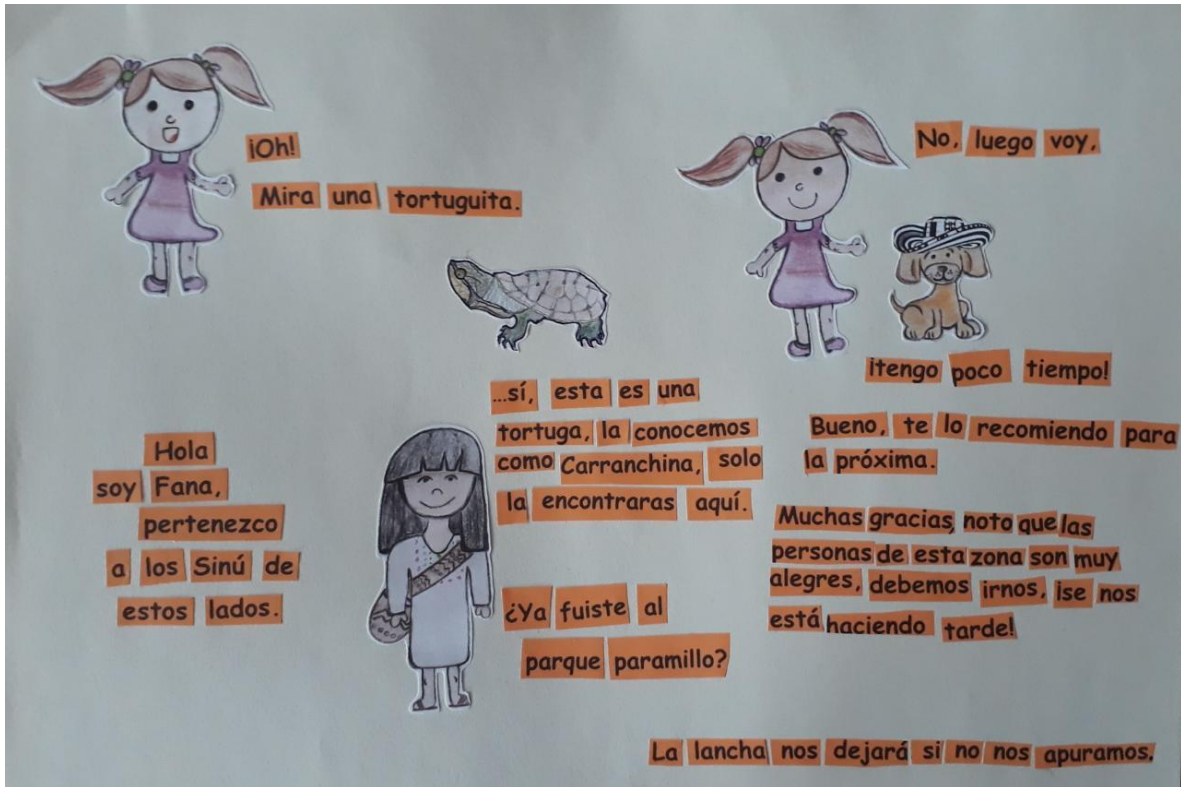 ¡Oh!
Mira una tortuguita.
Hola
soy Fana,
pertenezco
a los Sinú de
estos lados.
...sí, esta es una
tortuga, la conocemos
como Carranchina, solo
la encontraras aquí.
¿Ya fuiste al
parque paramillo?
No, luego voy,
¡tengo poco tiempo!
Bueno, te lo recomiendo para
la próxima.
Muchas gracias, noto que las
personas de esta zona son muy
alegres, debemos irnos, ¡se nos
está haciendo tarde!
La lancha nos dejará si no nos apuramos.